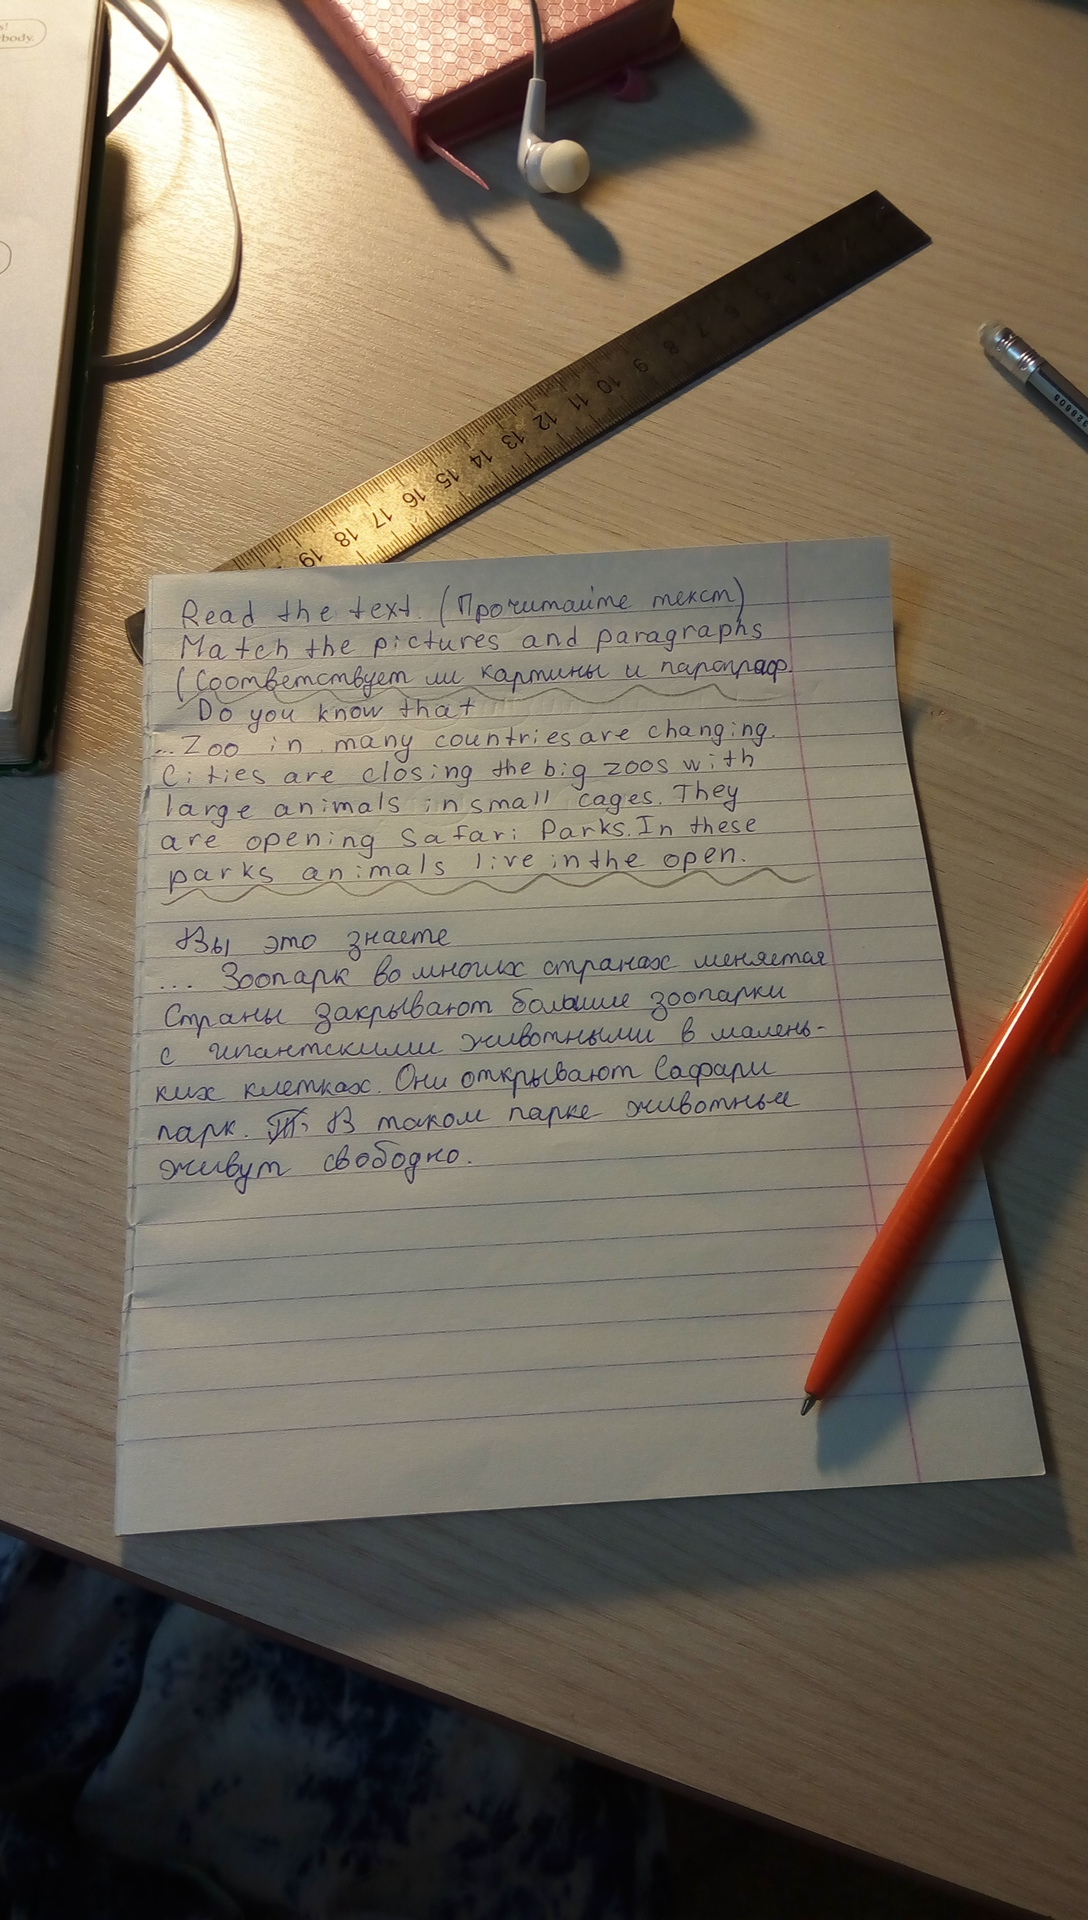 s!
body.
6
7
8
9
10
11
12
13
14
15
16
17
18
19
Read the text. (Прочитайте текст)
Match the pictures and paragraphs
(Соответствует ли картины и
Do you know that
...Zoo in many countries are changing.
Cities are closing the big zoos with
large animals in small cages. They
are opening Safari Parks. In these
parks animals live in the open.
Вы это знаете
... Зоопарк во многих странах меняется
Страны закрывают большие зоопарки
с гигантскими животными в малень-
ких клетках. Они открывают Сафари
парк. В таком парке животные
живут свободно.